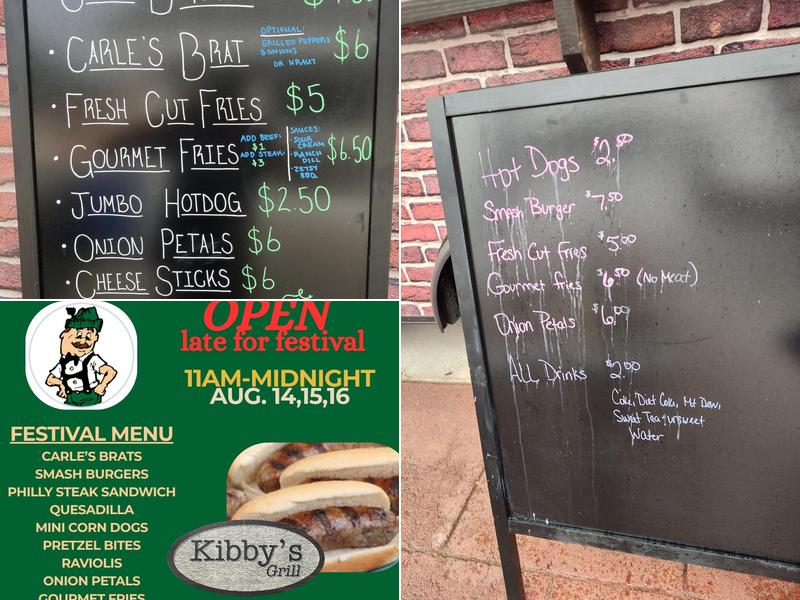 • CARLE'S BRAT $6
OPTIONAL:
GRILLED PEPPERS
& ONIONS
OR KRAUT
• FRESH CUT FRIES $5
• GOURMET FRIES $6.50
ADD BEEF:
$1
ADD STEAK:
$3
SAUCES:
• SOUR CREAM
• RANCH DILL
• ZETSY BBQ
• JUMBO HOTDOG $2.50
• ONION PETALS $6
• CHEESE STICKS $6
Hot Dogs $2.50
Smash Burger $7.50
Fresh Cut Fries $5.00
Gourmet fries $6.50 (No Meat)
Onion Petals $6.00
ALL Drinks $2.00
Coke, Diet Coke, Mt Dew,
Sweet Tea & unsweet
Water
OPEN
late for festival
11AM-MIDNIGHT
AUG. 14,15,16
FESTIVAL MENU
CARLE'S BRATS
SMASH BURGERS
PHILLY STEAK SANDWICH
QUESADILLA
MINI CORN DOGS
PRETZEL BITES
RAVIOLIS
ONION PETALS
GOURMET FRIES
Kibby's
Grill